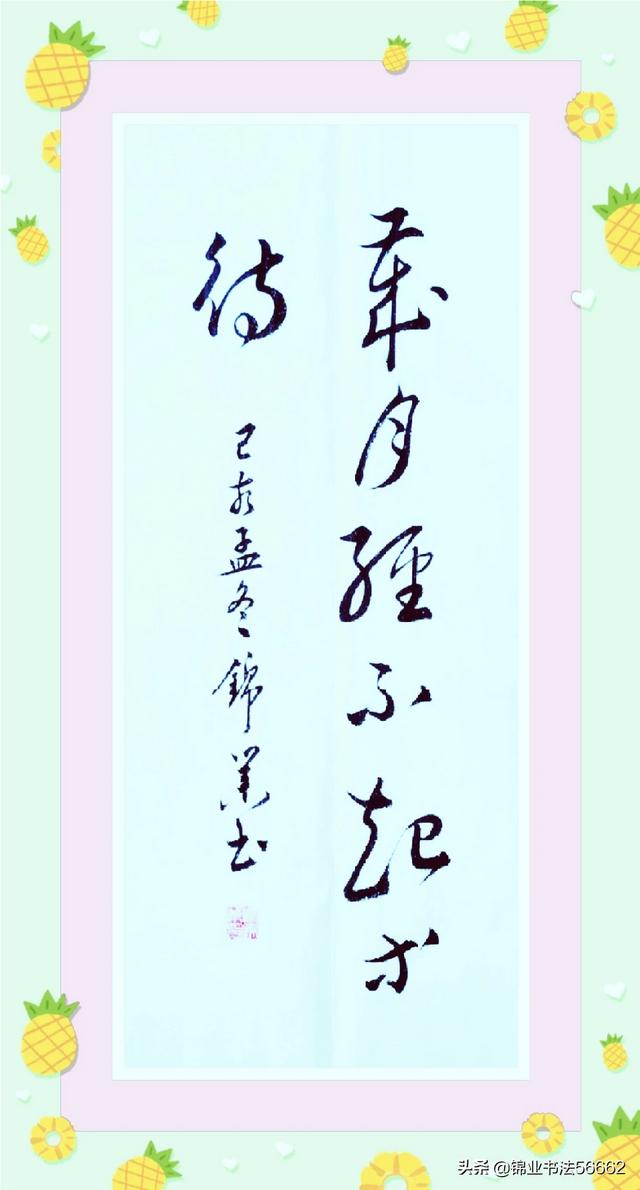 歲月經不起等
待
己亥孟冬錦業书
头条 @锦业书法56662